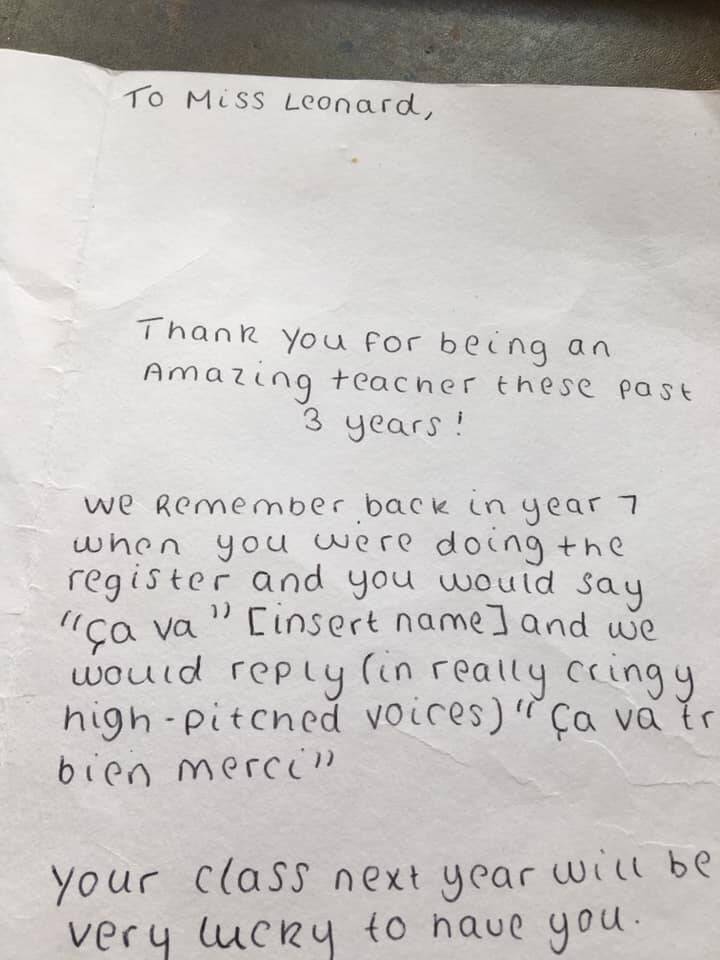 To Miss Leonard,
Thank you for being an
Amazing teacher these past
3 years!
we Remember back in year 7
when you were doing the
register and you would say
"ça va" [insert name] and we
would reply (in really cringy
high-pitched voices) "ça va tr
bien merci"
your class next year will be
very lucky to have you.